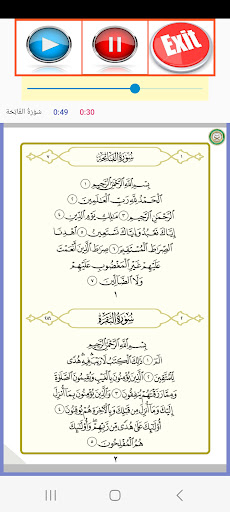 Exit
سورة الفاتحة 0:49 0:30
١ سُورَةُ الْفَاتِحَةِ ٧
بِسْمِ اللَّهِ الرَّحْمَٰنِ الرَّحِيمِ ١
الْحَمْدُ لِلَّهِ رَبِّ الْعَالَمِينَ ٢
الرَّحْمَٰنِ الرَّحِيمِ ٣ مَالِكِ يَوْمِ الدِّينِ ٤
إِيَّاكَ نَعْبُدُ وَإِيَّاكَ نَسْتَعِينُ ٥ اهْدِنَا
الصِّرَاطَ الْمُسْتَقِيمَ ٦ صِرَاطَ الَّذِينَ أَنْعَمْتَ
عَلَيْهِمْ غَيْرِ الْمَغْضُوبِ عَلَيْهِمْ
وَلَا الضَّالِّينَ ٧
١
٢ سُورَةُ الْبَقَرَةِ ٢٨٦
بِسْمِ اللَّهِ الرَّحْمَٰنِ الرَّحِيمِ
الم ١ ذَٰلِكَ الْكِتَابُ لَا رَيْبَ فِيهِ هُدًى
لِّلْمُتَّقِينَ ٢ الَّذِينَ يُؤْمِنُونَ بِالْغَيْبِ وَيُقِيمُونَ الصَّلَاةَ
وَمِمَّا رَزَقْنَاهُمْ يُنفِقُونَ ٣ وَالَّذِينَ يُؤْمِنُونَ بِمَا أُنزِلَ
إِلَيْكَ وَمَا أُنزِلَ مِن قَبْلِكَ وَبِالْآخِرَةِ هُمْ يُوقِنُونَ ٤
أُولَٰئِكَ عَلَىٰ هُدًى مِّن رَّبِّهِمْ وَأُولَٰئِكَ
هُمُ الْمُفْلِحُونَ ٥
٢